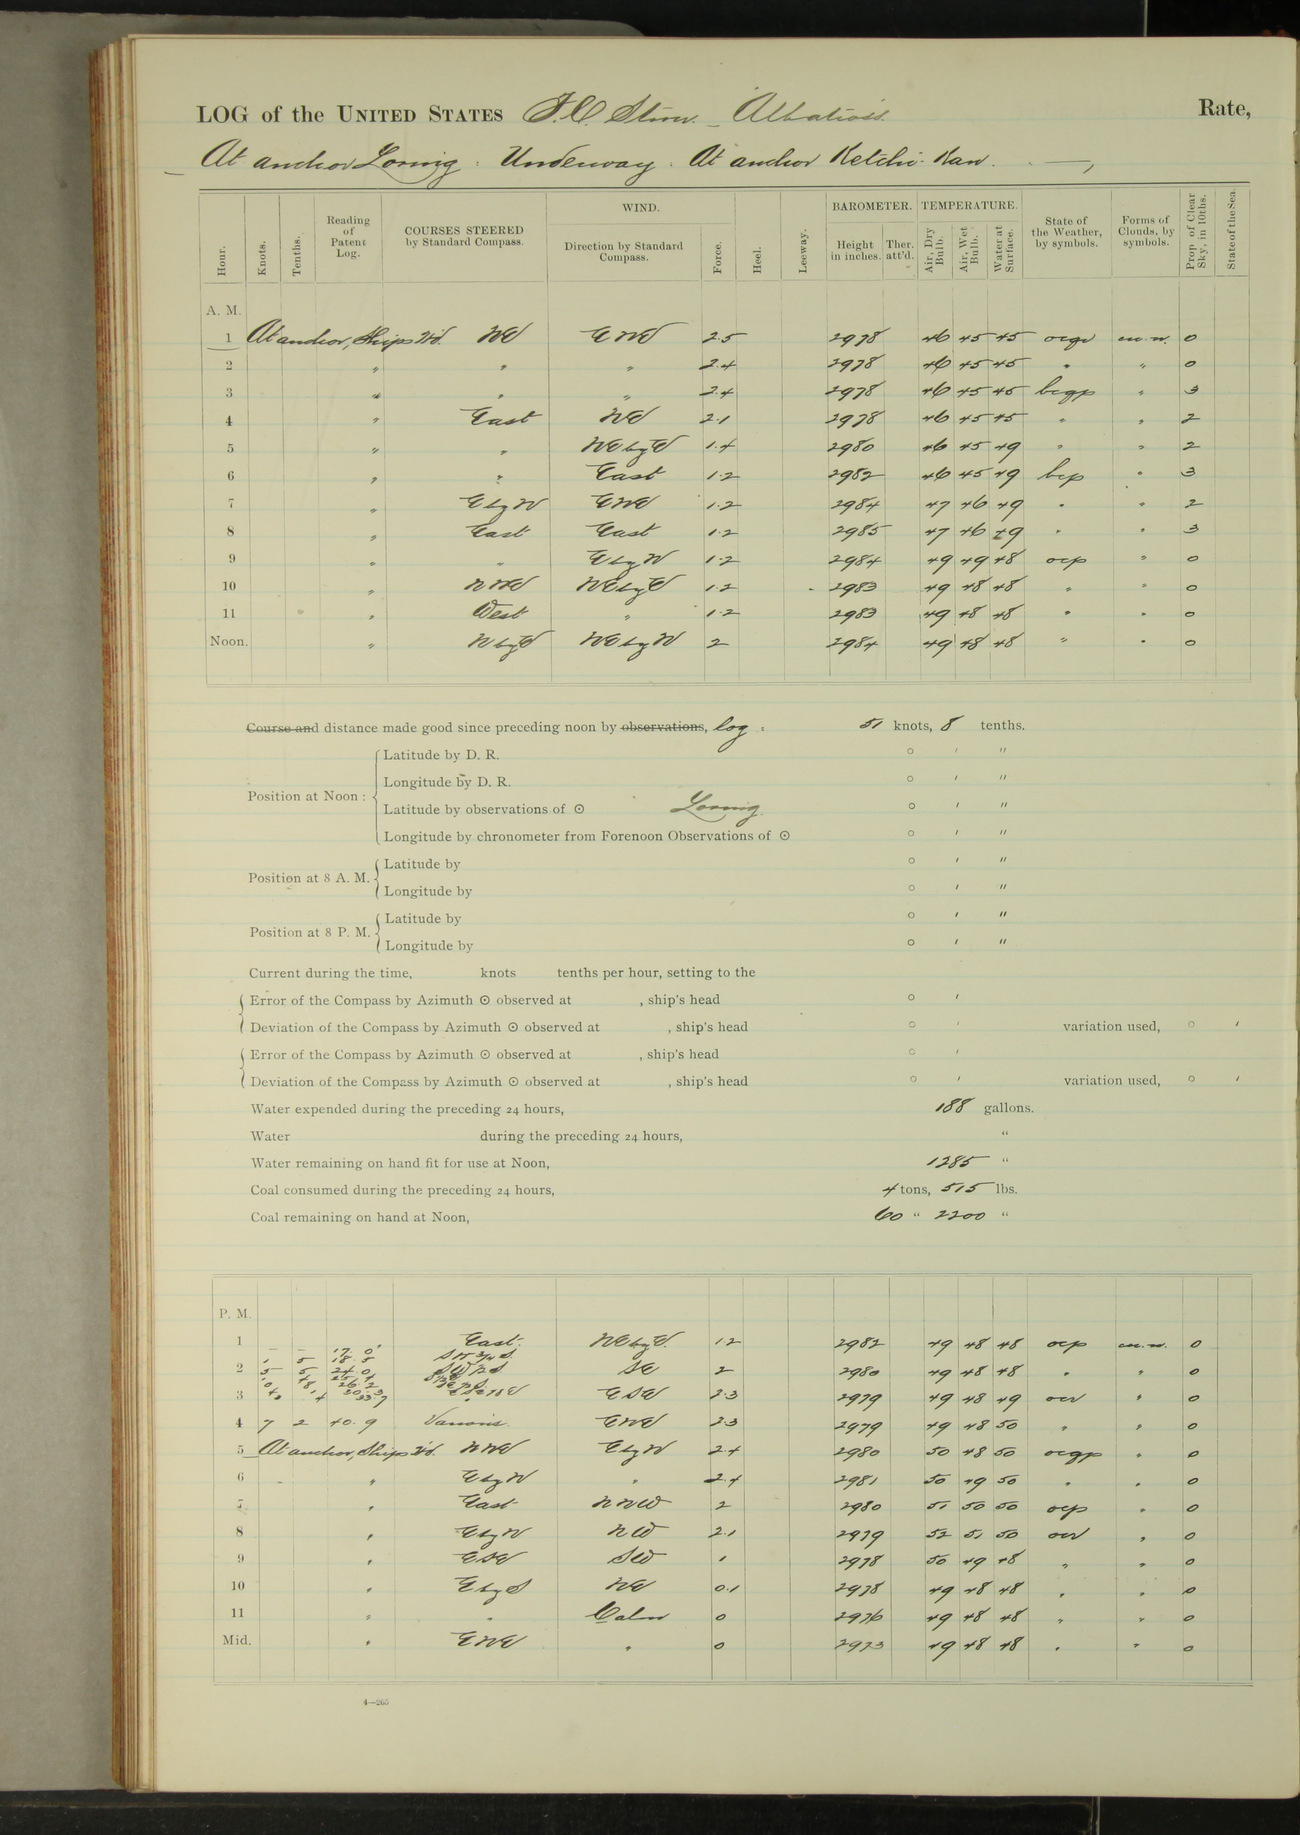 LOG of the UNITED STATES F.C. Stmr. Albatross. Rate,
At anchor Loring : Underway : At anchor Ketchi-Kan.
Hour. Knots. Tenths. Reading of Patent Log. COURSES STEERED by Standard Compass. WIND. Direction by Standard Compass. Force. Heel. Leeway. BAROMETER. Height in inches. Ther. att'd. TEMPERATURE. Air, Dry Bulb. Air, Wet Bulb. Water at Surface. State of the Weather, by symbols. Forms of Clouds, by symbols. Prop. of Clear Sky, in 10ths. State of the Sea.
A. M.
1 At anchor, Ships H'd. NE ENE 2.5 2978 46 45 45 0
2 " " " 2.4 2978 46 45 45 " " 0
3 " " " 2.4 2978 46 45 45 bcqp " 3
4 " East NE 2.1 2978 46 45 45 " " 2
5 " " NE by E 1.4 2980 46 45 49 " " 2
6 " " East 1.2 2982 46 45 49 bcp " 3
7 " E by N ENE 1.2 2984 47 46 49 " " 2
8 " East East 1.2 2985 47 46 49 " " 3
9 " " E by N 1.2 2984 49 49 48 ocp " 0
10 " NNE NE by E 1.2 2983 49 48 48 " " 0
11 " West " 1.2 2983 49 48 48 " " 0
Noon. " N by E NE by N 2 2984 49 48 48 " " 0
Course and distance made good since preceding noon by observations, log : 51 knots, 8 tenths.
Position at Noon :
Latitude by D. R. ° ′ ″
Longitude by D. R. ° ′ ″
Latitude by observations of ☉ Loring ° ′ ″
Longitude by chronometer from Forenoon Observations of ☉ ° ′ ″
Position at 8 A. M.
Latitude by ° ′ ″
Longitude by ° ′ ″
Position at 8 P. M.
Latitude by ° ′ ″
Longitude by ° ′ ″
Current during the time, knots tenths per hour, setting to the
Error of the Compass by Azimuth ☉ observed at , ship's head ° ′
Deviation of the Compass by Azimuth ☉ observed at , ship's head ° ′ variation used, ° ′
Error of the Compass by Azimuth ☉ observed at , ship's head ° ′
Deviation of the Compass by Azimuth ☉ observed at , ship's head ° ′ variation used, ° ′
Water expended during the preceding 24 hours, 188 gallons.
Water during the preceding 24 hours, "
Water remaining on hand fit for use at Noon, 1285 "
Coal consumed during the preceding 24 hours, 4 tons, 515 lbs.
Coal remaining on hand at Noon, 60 " 2200 "
P. M.
1 – – 17. 0 East NE by E 1.2 2982 49 48 48 ocp 0
2 5 5 24. 0 SE 2 2980 49 48 48 " " 0
3 ESE 2.3 2979 49 48 49 ocr " 0
4 7 2 40. 9 Various ENE 2.3 2979 49 48 50 " " 0
5 At anchor, Ships H'd. NNE E by N 2.4 2980 50 48 50 ocqp " 0
6 " E by N " 2.4 2981 50 49 50 " " 0
7 " East NNW 2 2980 51 50 50 ocp " 0
8 " E by N NW 2.1 2979 52 51 50 ocr " 0
9 " ESE SW 1 2978 50 49 48 " " 0
10 " E by S NE 0.1 2978 49 48 48 " " 0
11 " " Calm 0 2976 49 48 48 " " 0
Mid. " ENE " 0 2973 49 48 48 " " 0
4—265